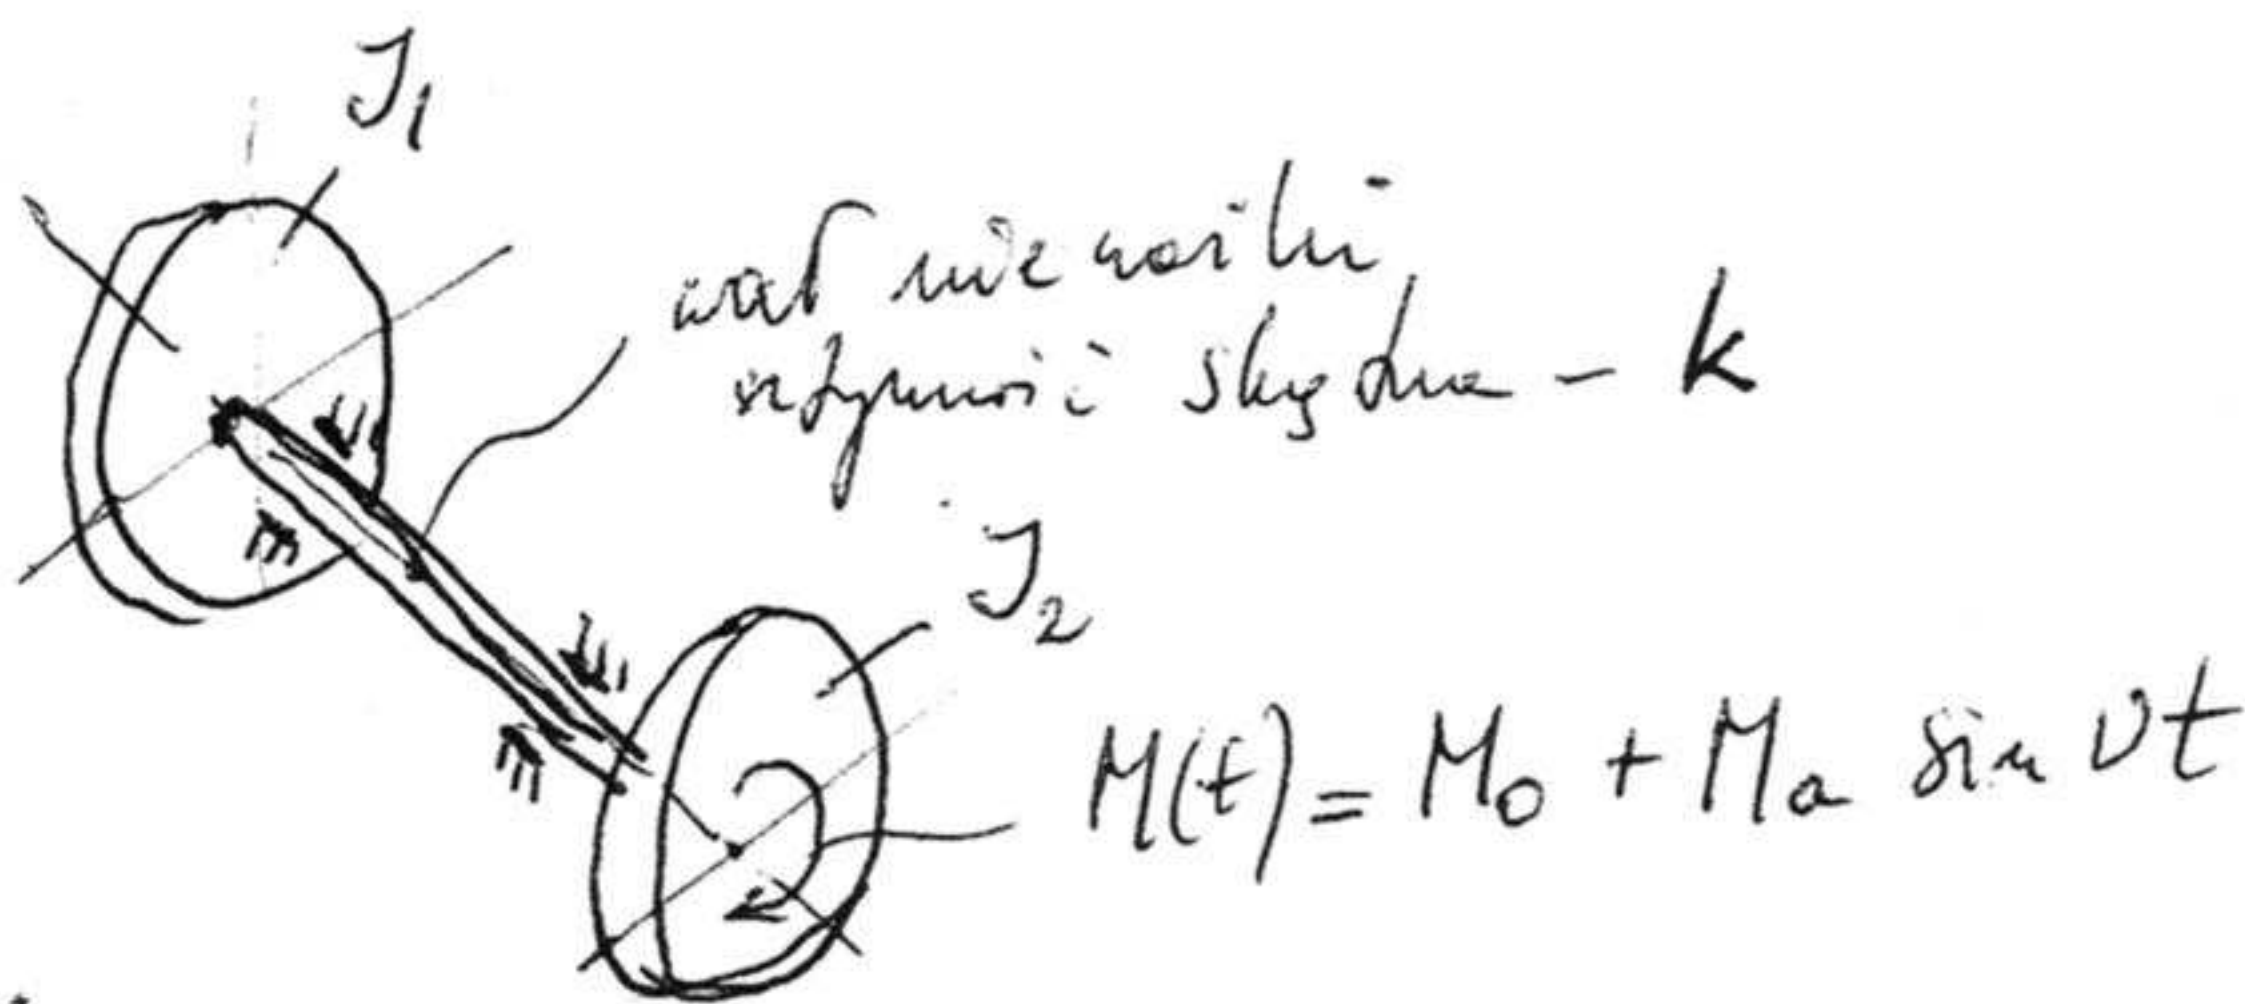 J₁
wał nieważki
sztywność skrętna – k
J₂
M(t) = M₀ + Mₐ sin νt